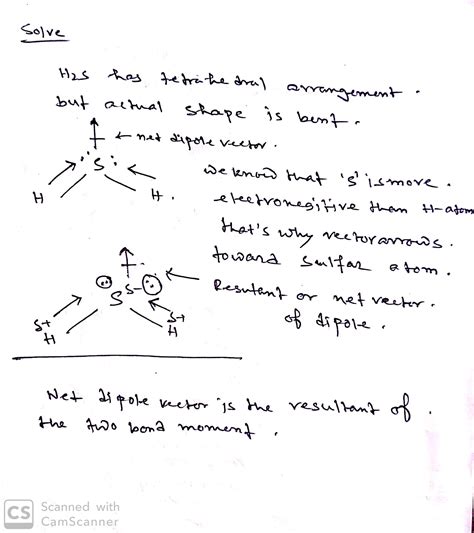 Solve
H2S has tetrahedral arrangement.
but actual shape is bent.
← net dipole vector.
S
H
H.
we know that 's' is more.
electronegitive than H-atom
that's why vector arrows.
toward Sulfar atom.
S
S-
Resutant or net vector.
of dipole.
S+
H
S+
H
Net dipole vector is the resultant of.
the two bond moment.
CS Scanned with
CamScanner